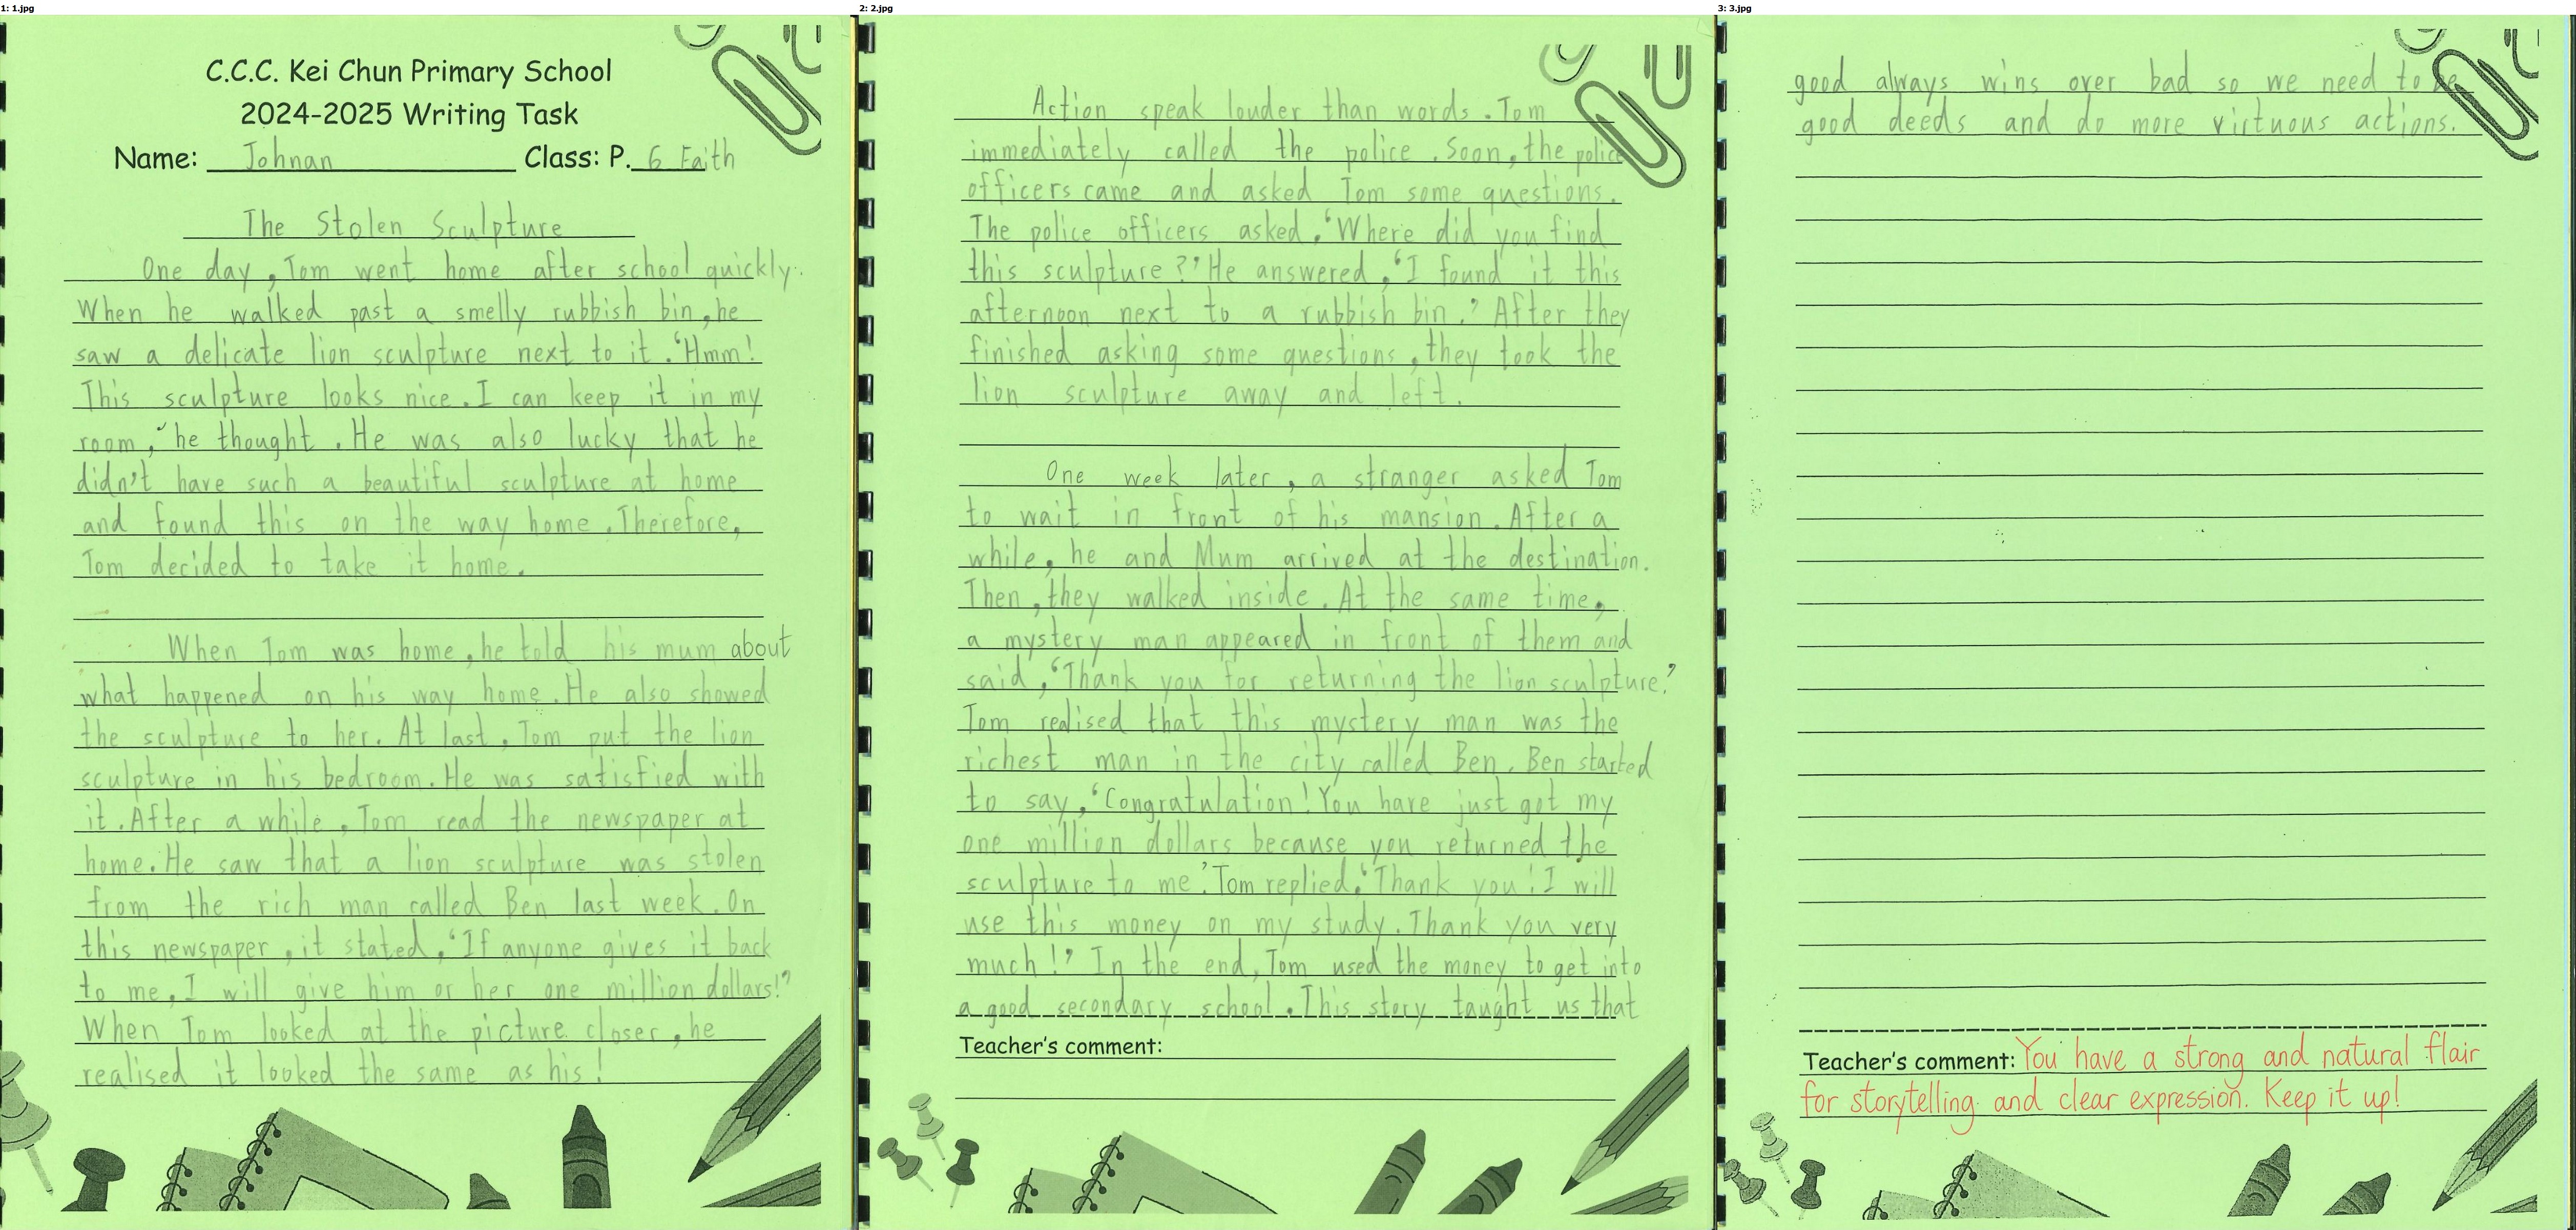 1: 1.jpg
C.C.C. Kei Chun Primary School
2024-2025 Writing Task
Name: Johnan Class: P. 6 Faith
The Stolen Sculpture
One day, Tom went home after school quickly.
When he walked past a smelly rubbish bin, he
saw a delicate lion sculpture next to it. 'Hmm!
This sculpture looks nice. I can keep it in my
room,' he thought. He was also lucky that he
didn't have such a beautiful sculpture at home
and found this on the way home. Therefore,
Tom decided to take it home.
When Tom was home, he told his mum about
what happened on his way home. He also showed
the sculpture to her. At last, Tom put the lion
sculpture in his bedroom. He was satisfied with
it. After a while, Tom read the newspaper at
home. He saw that a lion sculpture was stolen
from the rich man called Ben last week. On
this newspaper, it stated, 'If anyone gives it back
to me, I will give him or her one million dollars!'
When Tom looked at the picture closer, he
realised it looked the same as his!
2: 2.jpg
Action speak louder than words. Tom
immediately called the police. Soon, the police
officers came and asked Tom some questions.
The police officers asked, 'Where did you find
this sculpture?' He answered, 'I found it this
afternoon next to a rubbish bin.' After they
finished asking some questions, they took the
lion sculpture away and left.
One week later, a stranger asked Tom
to wait in front of his mansion. After a
while, he and Mum arrived at the destination.
Then, they walked inside. At the same time,
a mystery man appeared in front of them and
said, 'Thank you for returning the lion sculpture.'
Tom realised that this mystery man was the
richest man in the city called Ben. Ben started
to say, 'Congratulation! You have just got my
one million dollars because you returned the
sculpture to me'. Tom replied, 'Thank you! I will
use this money on my study. Thank you very
much!' In the end, Tom used the money to get into
a good secondary school. This story taught us that
Teacher's comment:
3: 3.jpg
good always wins over bad so we need to be
good deeds and do more virtuous actions.
Teacher's comment: You have a strong and natural flair
for storytelling and clear expression. Keep it up!